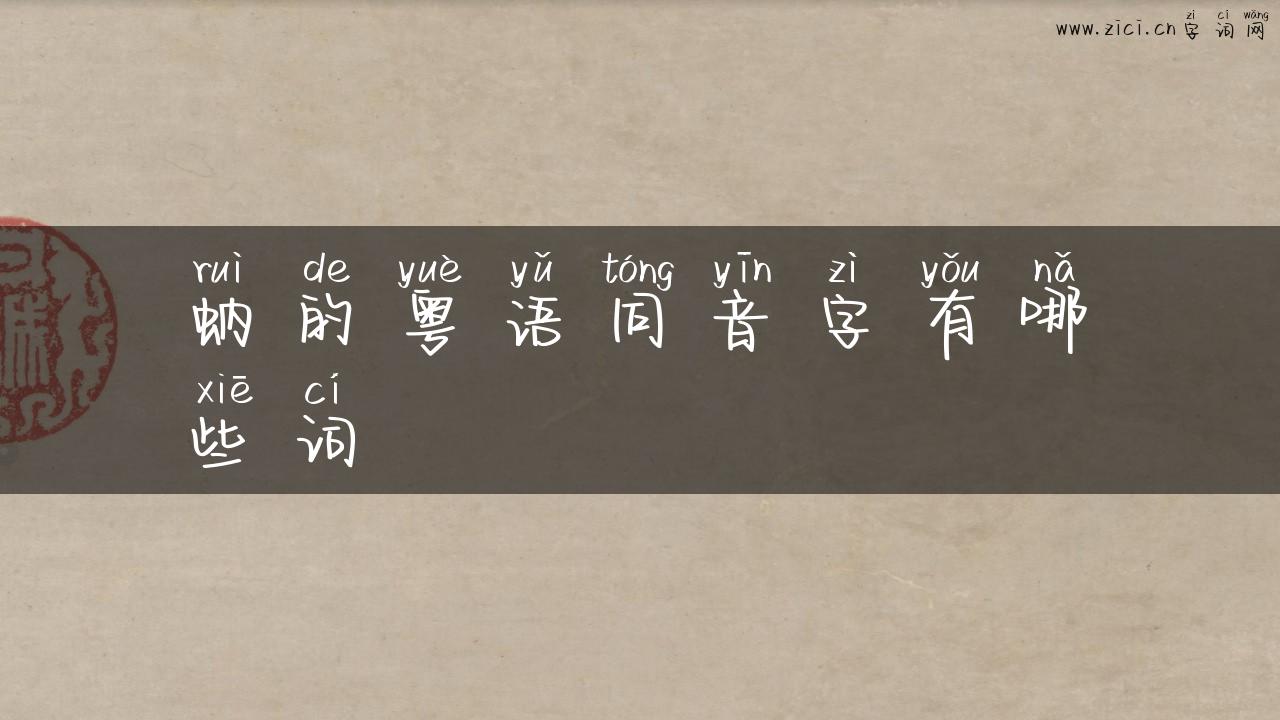 zì cí wǎng
www.zici.cn 字词网
ruì de yuè yǔ tóng yīn zì yǒu nǎ
蚋的粤语同音字有哪
xiē cí
些词